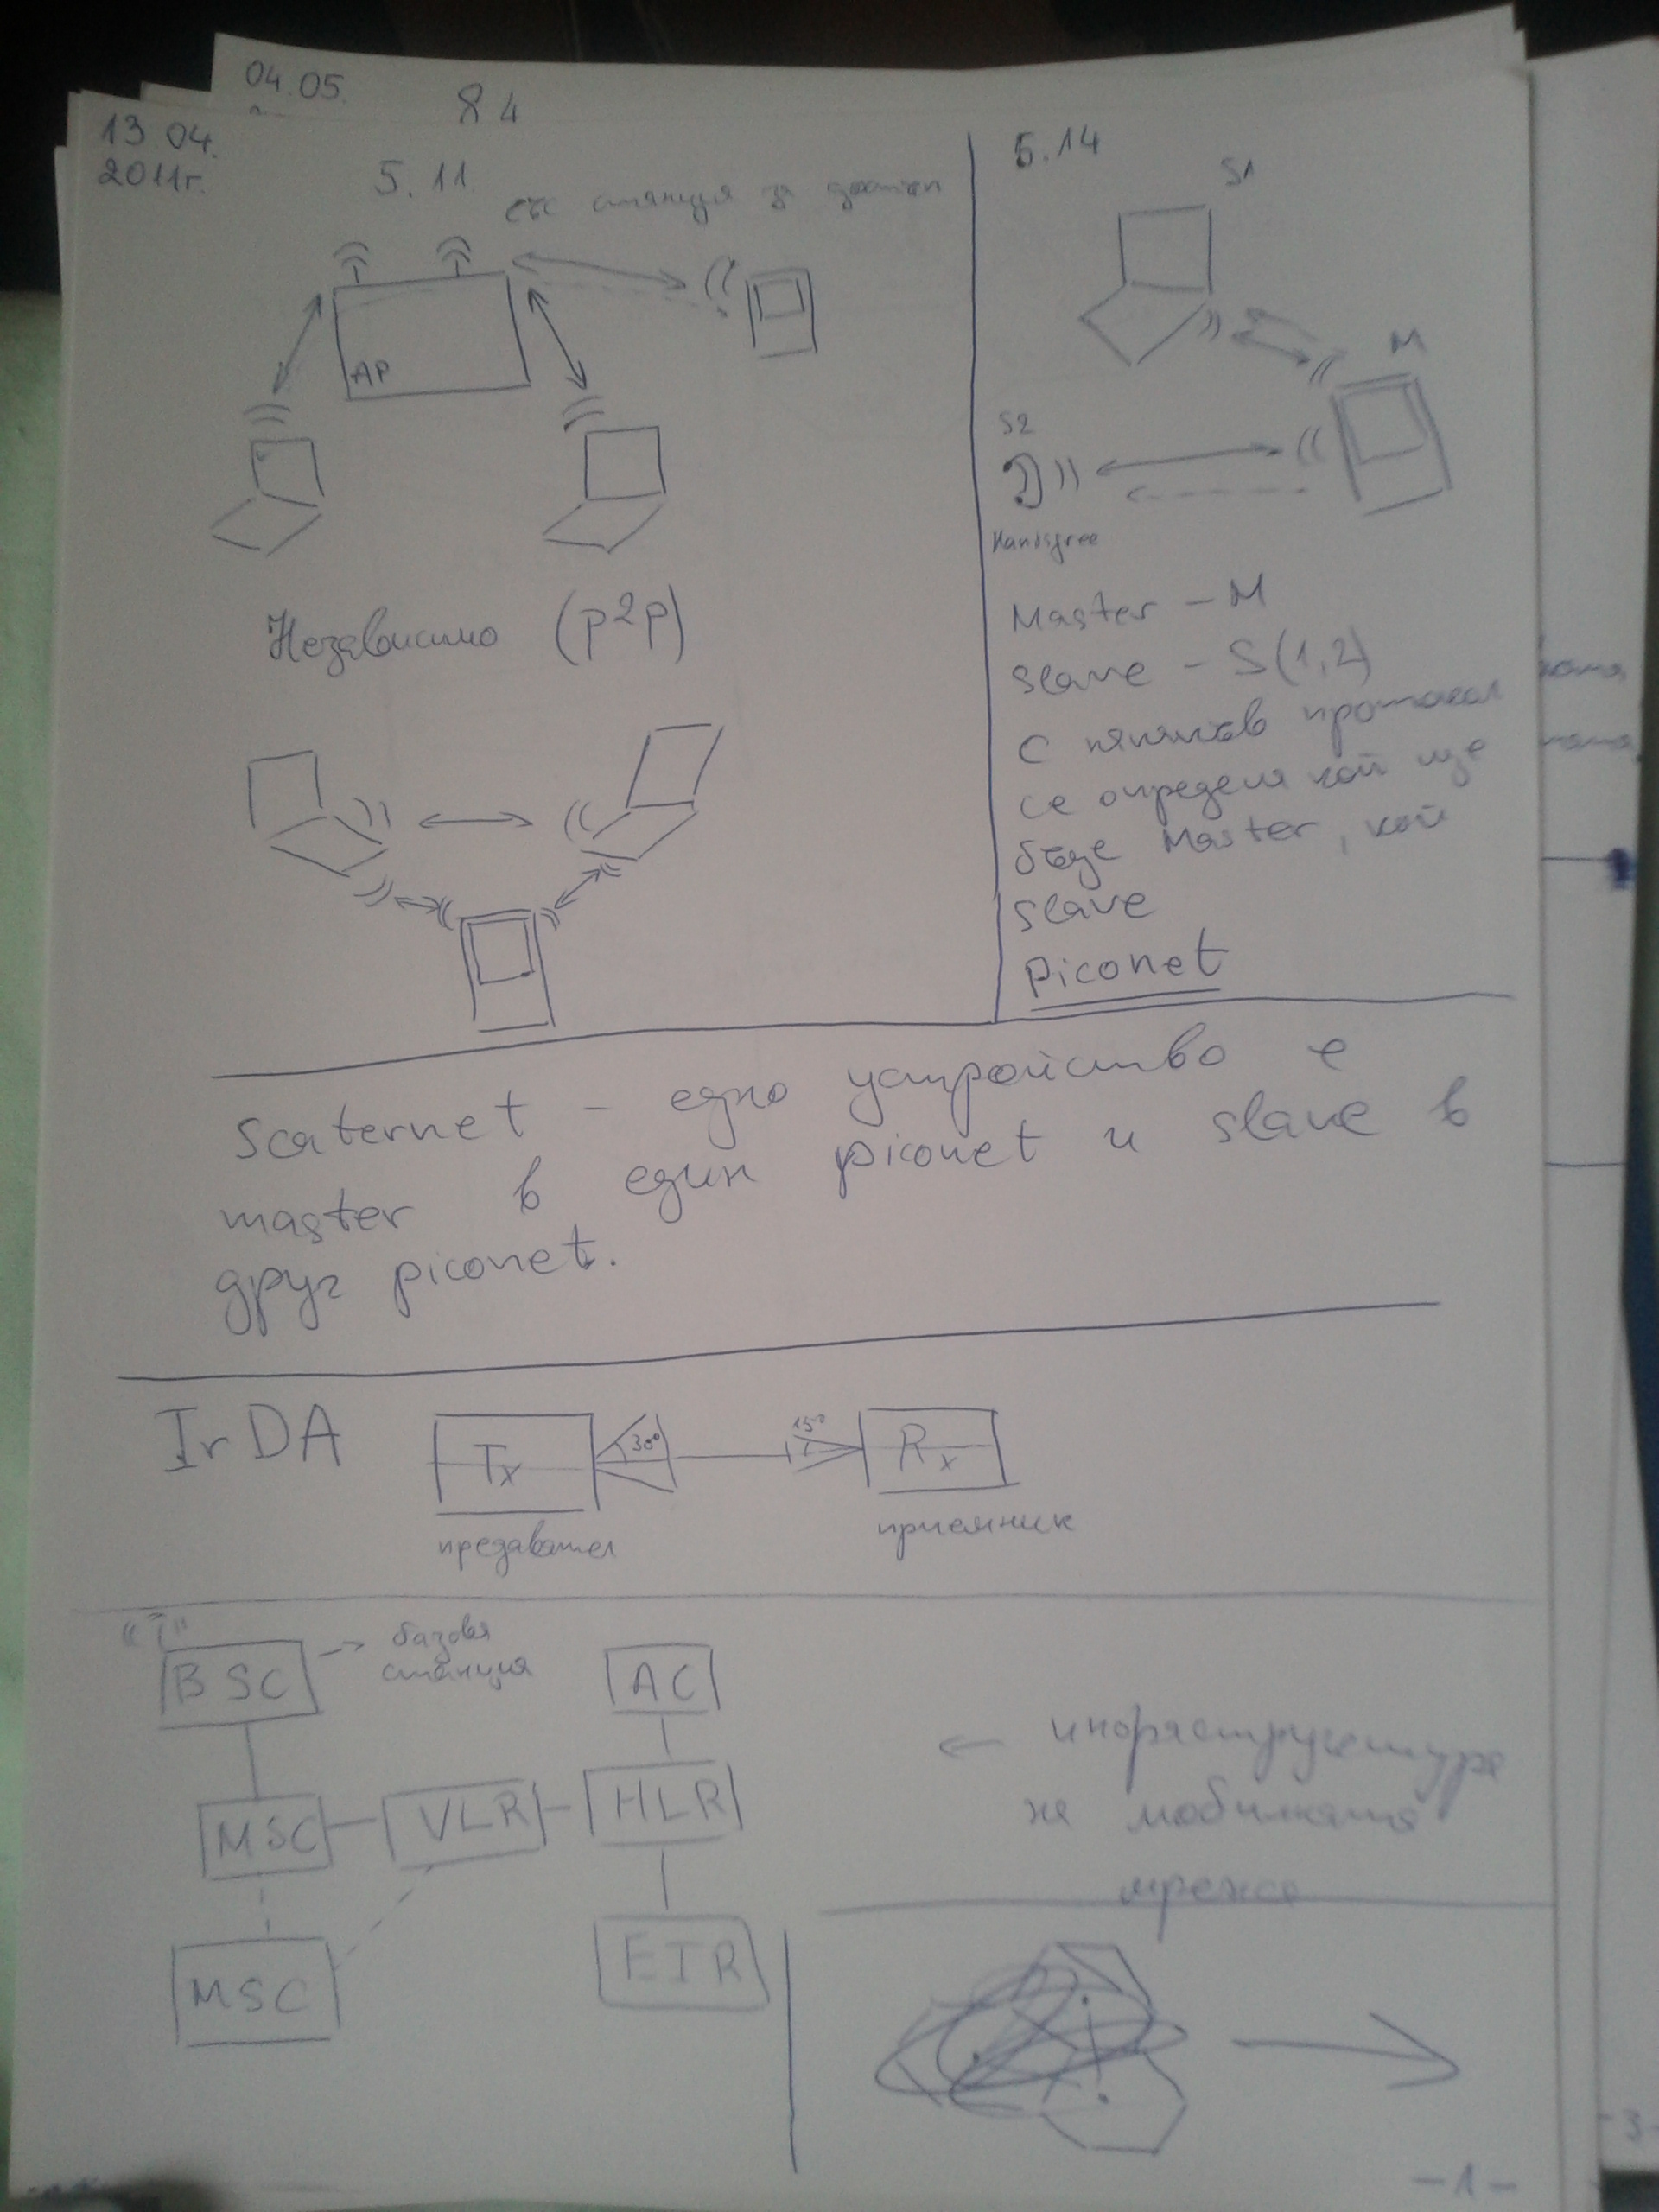 04.05
13.04.
2011г.
5.11
със станция за достъп
AP
Независимо (p2p)
5.14
S1
M
S2
Master – M
Slave – S(1,2)
С пълния протокол
се определя кой ще
бъде Master, кой
Slave
Piconet
Scaternet – едно устройство е
master в един piconet и slave в
друг piconet.
IrDA
Tx
30°
15°
Rx
предавател
приемник
BSC → базова
станция
AC
MSC
VLR
HLR
MSC
ETR
← инфраструктура
на мобилната
мрежа
-1-
-3